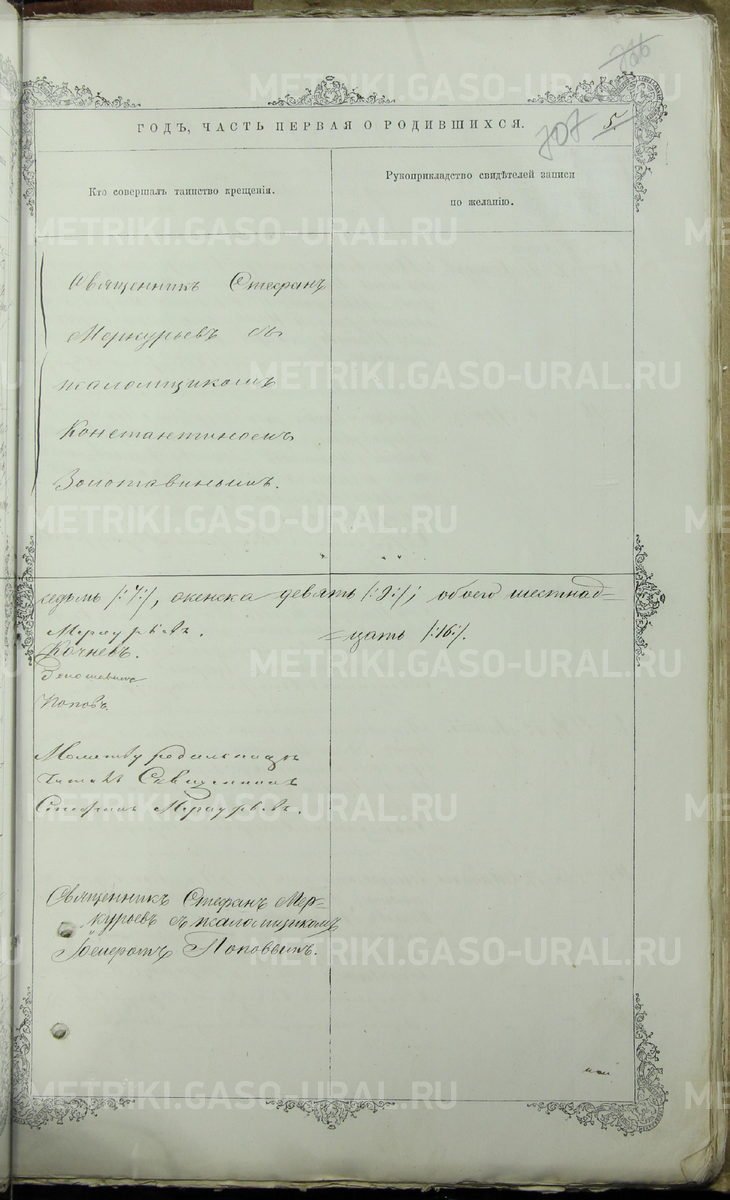 726
ГОДЪ, ЧАСТЬ ПЕРВАЯ О РОДИВШИХСЯ.
707
5.
Кто совершалъ таинство крещенія.
Рукоприкладство свидѣтелей записи
по желанію.
Священникъ Стефанъ
Меркурьевъ съ
псаломщикомъ
Константиномъ
Золотавинымъ.
седьмь /:7:/, женска девять /:9:/, обоего шестнад=
=цать /:16:/.
Меркурьевъ.
Кочневъ.
Поповъ
Молитву родильницѣ
Священникъ
Стефанъ Меркурьевъ.
Священникъ Стефанъ Мер-
курьевъ съ псаломщикомъ
Поповымъ.
METRIKI.GASO-URAL.RU